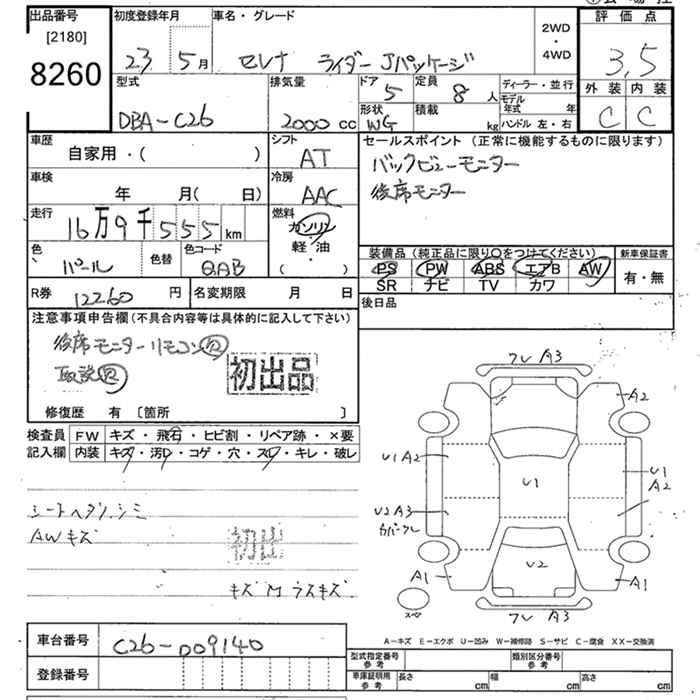 出品番号
[2180]
8260
初度登録年月
23 5月
車名・グレード
セレナ ライダー Jパッケージ
2WD
・
4WD
評価点
3.5
外装 内装
C C
型式
DBA-C26
排気量
2000 cc
ドア
5
定員
8 人
形状
WG
積載
kg
ディーラー・並行
モデル年式 年
ハンドル 左・右
車歴
自家用・( )
シフト
AT
車検
年 月( 日)
冷房
AAC
走行
16万9千555 km
燃料
ガソリン
軽・油
( )
色
パール
色替
色コード
QAB
R券
12260 円
名変期限 月 日
セールスポイント (正常に機能するものに限ります)
バックビューモニター
後席モニター
装備品 (純正品に限り○をつけてください)
PS PW ABS エアB AW
SR ナビ TV カワ
新車保証書
有・無
後日品
注意事項申告欄(不具合内容等は具体的に記入して下さい)
後席モニターリモコン
取説
初出品
修復歴 有 [箇所 ]
検査員記入欄
FW キズ・飛石・ヒビ割・リペア跡・×要
内装 キズ・汚レ・コゲ・穴・スレ・キレ・破レ
シートヘタリ.シミ
AWキズ
初出
キズ M ウスキズ
フレ A3
A2
U1 A2
U1
U1
A2
U2 A3
カバークレ
U2
A1
A1
スペ
フレ A3
A-キズ E-エクボ U-凹み W-補修跡 S-サビ C-腐食 XX-交換済
車台番号
C26-009140
登録番号
型式指定番号 参考
類別区分番号 参考
車庫証明用 参考
長さ cm
幅 cm
高さ cm